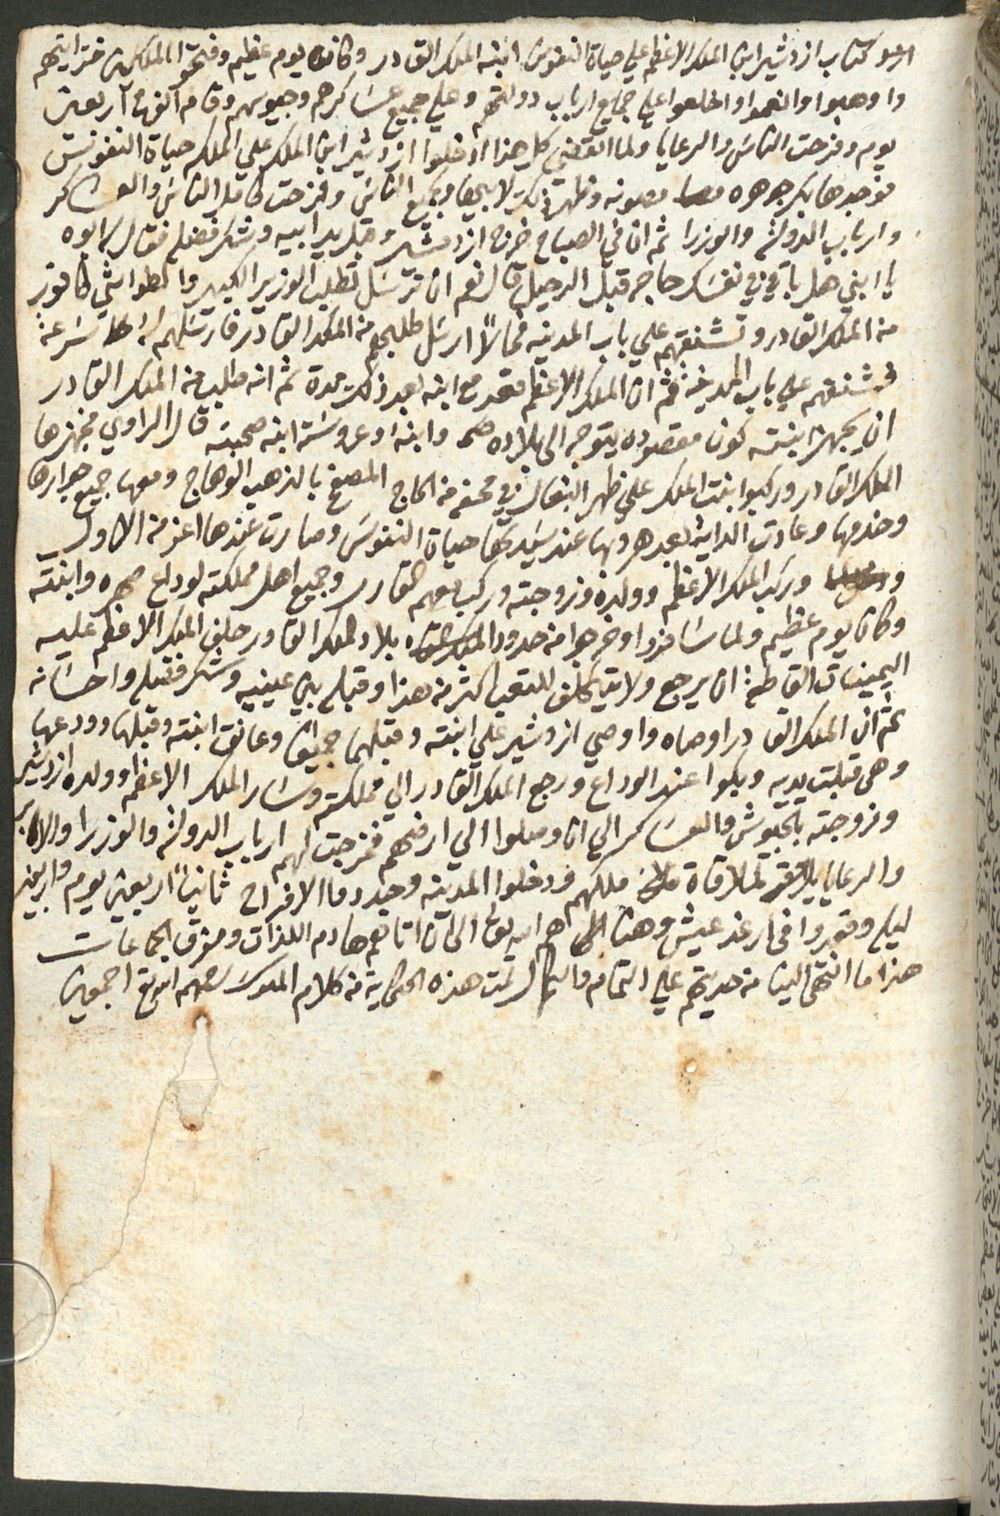 كتاب ازدشير ابن الملك الاعظم علي حياة النفوس ابنة الملك القادر وكان يوم عظيم وفتحوا الملكين خزاينهم
واوهبوا وانعموا واخلعوا علي جميع ارباب دولتهم وعلي جميع عساكرهم وجيوشهم وقام الفرح اربعين
يوم وفرحت الناس والرعايا ولما انقضي كل هذا ادخلوا ازدشير ابن الملك علي الملكه حياة النفوس
فوجدها بكر جوهره مصونه وظهر ذلك لابيها وجميع الناس وفرحت كامل الناس والعساكر
وارباب الدولة والوزرا ثم ان في الصباح خرج ازدشير وقبل يد ابيه وشكر فضله فقال له ابوه
يا ابني هل باقي في نفسك حاجه قبل الرحيل قال نعم ان ترسل تطلب الوزير الكبير والطواشي كافور
من الملك القادر وتشنقهم علي باب المدينه فحالاً ارسل طلبهم من الملك القادر فارسلهم له سرعة
فشنقهم علي باب المدينة ثم ان الملك الاعظم قعد مع ابنه بعد ذلك مدة ثم انه طلب من الملك القادر
ان يجهز ابنته كون مقصوده يتوجه الي بلاده وابنه وعروسة ابنه صحبته قال الراوي فجهزها
الملك القادر وركبوا بنت الملك علي ظهر البغال في محفه من العاج المصفح بالذهب الوهاج ومعها جميع جوارها
وخدمها وعادت الداية بعد هروبها عند سيدتها حياة النفوس وصارت عندها اعز من الاول
وركب الملك الاعظم وولده وزوجته وركب معهم القادر وجميع اهل مملكته لوداع صهره وابنته
وكان يوم عظيم ولما سافروا وخرجوا من حدود بلاد الملك القادر حلف الملك الاعظم عليه
اليمينات القاطعة ان يرجع ولا يتكلف للتعب اكثر من هذا وقبله بين عينيه وشكر فضله واحسانه
ثم ان الملك القادر اوصاه واوصي ازدشير علي ابنته وقبلهما جميعاً وعانق ابنته وقبلها وودعها
وهي قبلت يديه وبكوا عند الوداع ورجع الملك القادر الي مملكته وسار الملك الاعظم وولده ازدشير
وزوجته بالجيوش والعساكر الي ان وصلوا الي ارضهم فخرجت لهم ارباب الدولة والوزرا والاكابر
والرعايا لملاقاة ملكهم ودخلوا المدينه وجددوا الافراح ثانياً اربعين يوم واربعين
ليله وقعدوا في ارغد عيش وهنا الي ان اتاهم هادم اللذات ومفرق الجماعات
هذا ما انتهي الينا من حديثهم علي التمام والكمال تمت هذه الحكاية من كلام الملوك رحمهم الله اجمعين